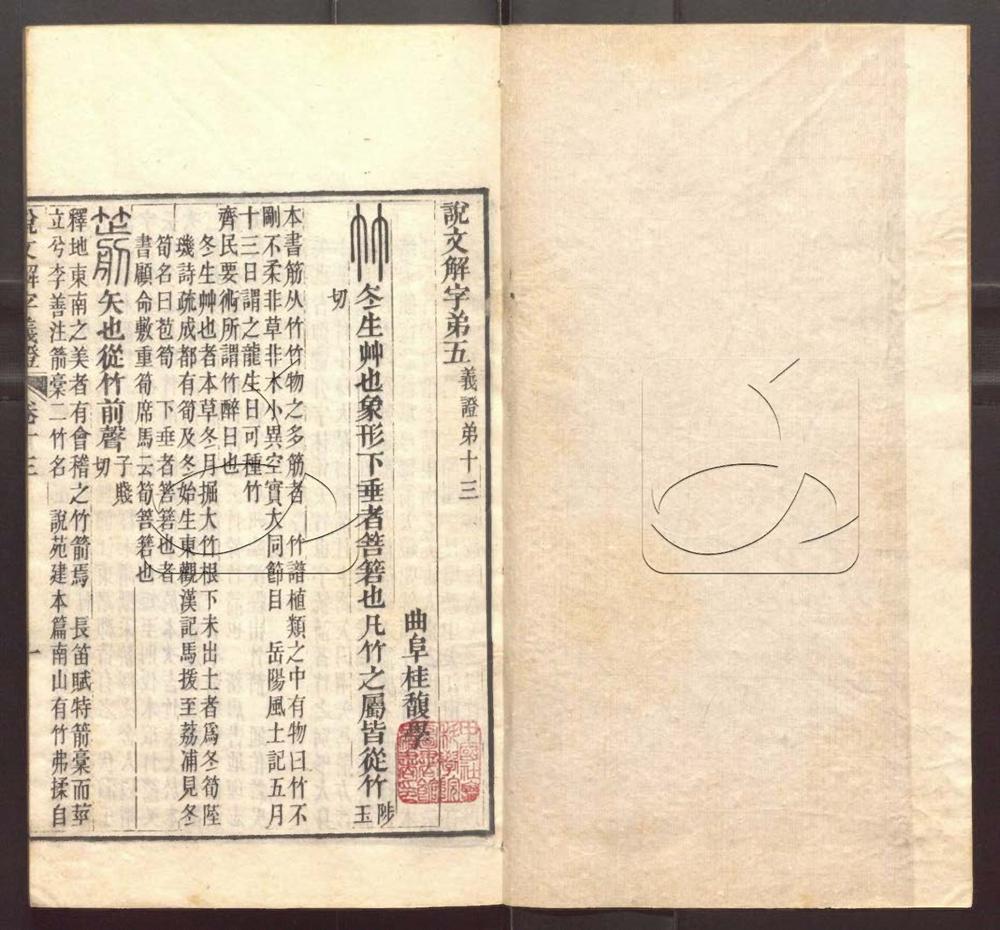 說文解字弟五 義證弟十三
曲阜桂馥學
竹 冬生艸也象形下垂者箁箬也凡竹之屬皆從竹 陟玉
切
本書筋从竹竹物之多筋者 竹譜植類之中有物曰竹不
剛不柔非草非木小異空實大同節目 岳陽風土記五月
十三日謂之龍生日可種竹
齊民要術所謂竹醉日也
冬生艸也者本草冬月掘大竹根下未出土者為冬筍陸
璣詩疏成都有筍及冬始生東觀漢記馬援至荔浦見冬
筍名曰苞筍 下垂者箁箬也者
書顧命敷重筍席馬云筍箁箬也
箭 矢也從竹前聲 子賤切
釋地東南之美者有會稽之竹箭焉 長笛賦特箭槀而莖
立兮李善注箭槀二竹名 說苑建本篇南山有竹弗揉自
說文解字義證 卷十三 一